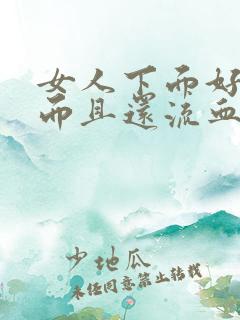 女人下而好
而且還流血
少地瓜
未经同意禁止转载